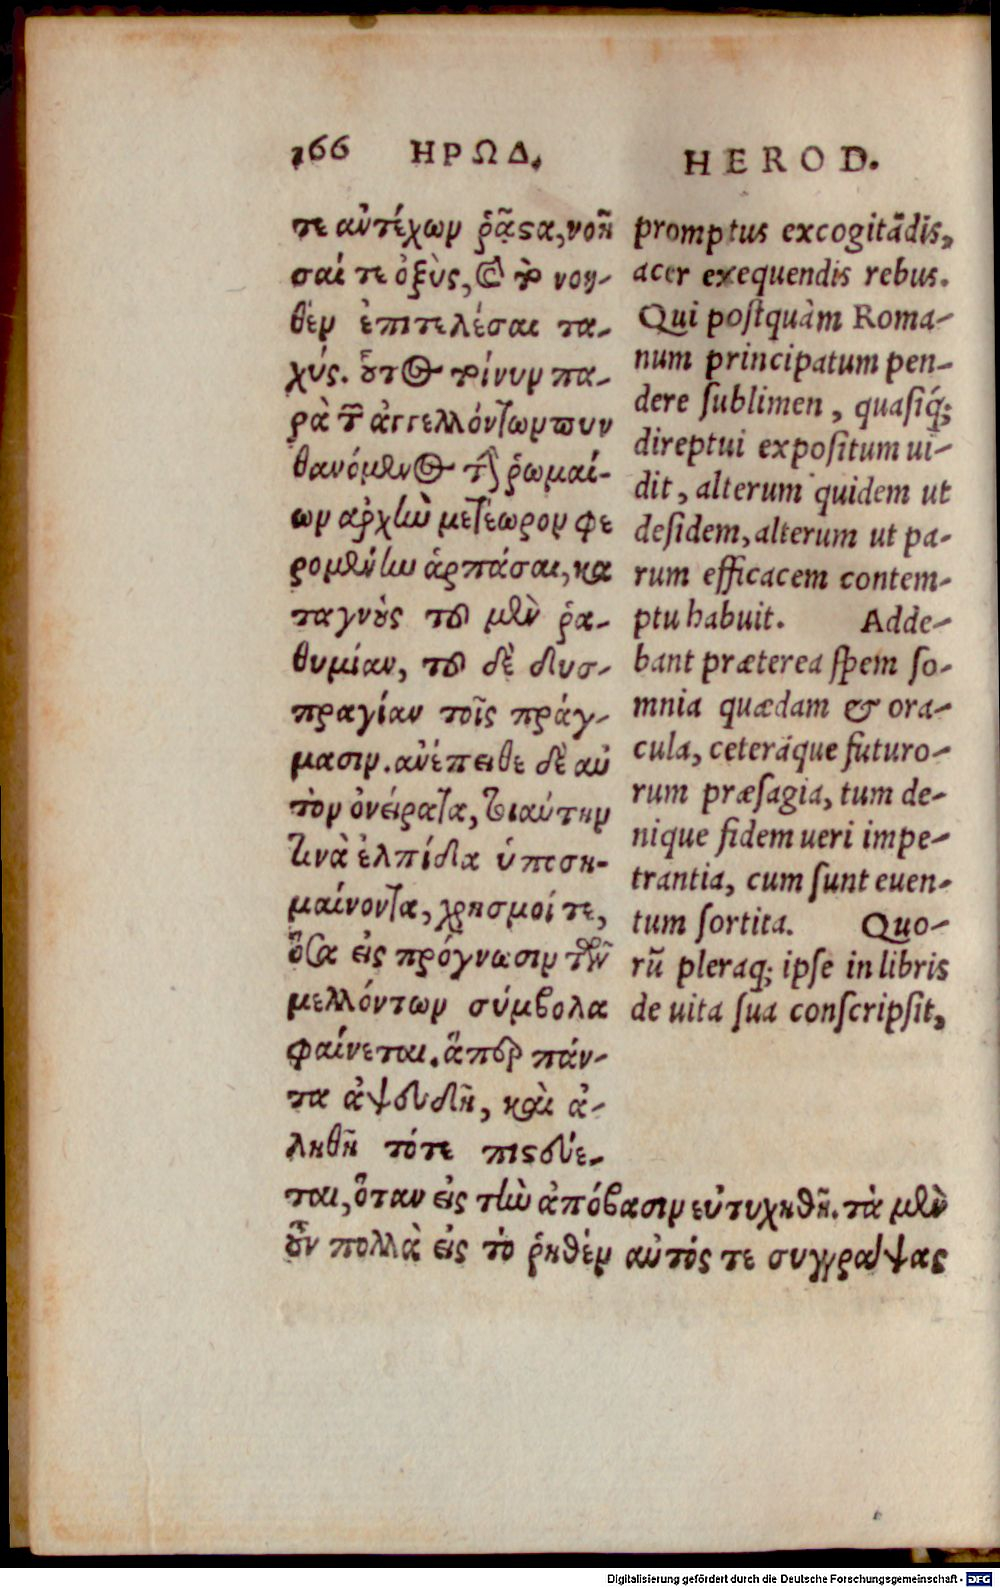 166 ΗΡΩΔ.
τε αὐτέχων ῥᾷϛα, νοῆ
σαί τε ὀξὺς, καὶ τὸ νοη-
θὲν ἐπιτελέσαι τα-
χύς. οὗτος τοίνυν πα-
ρὰ τῶν ἀγγελλόντων πυν
θανόμενος τὴν ῥωμαί-
ων ἀρχὴν μετέωρον φε
ρομένην ἁρπάσαι, κα
ταγνοὺς τοῦ μὲν ῥα-
θυμίαν, τοῦ δὲ δυσ-
πραγίαν τοῖς πράγ-
μασιν. ἀνέπειθε δὲ αὐ
τὸν ὀνείρατα, τοιαύτην
τινὰ ἐλπίδα ὑπεση-
μαίνοντα, χρησμοί τε,
ὅσα εἰς πρόγνωσιν τῶν
μελλόντων σύμβολα
φαίνεται. ἅπερ πάν-
τα ἀψευδῆ, καὶ ἀ-
ληθῆ τότε πιϛεύε-
ται, ὅταν εἰς τὴν ἀπόβασιν εὐτυχηθῆ. τὰ μὲν
οὖν πολλὰ εἰς τὸ ῥηθὲν αὐτός τε συγγράψας
HEROD.
promptus excogitãdis,
acer exequendis rebus.
Qui postquàm Roma-
num principatum pen-
dere sublimen, quasiq́;
direptui expositum ui-
dit, alterum quidem ut
desidem, alterum ut pa-
rum efficacem contem-
ptu habuit. Adde-
bant præterea spem so-
mnia quædam & ora-
cula, ceteráque futuro-
rum præsagia, tum de-
nique fidem ueri impe-
trantia, cum sunt euen-
tum sortita. Quo-
rũ pleraq; ipse in libris
de uita sua conscripsit,
Digitalisierung gefördert durch die Deutsche Forschungsgemeinschaft - DFG